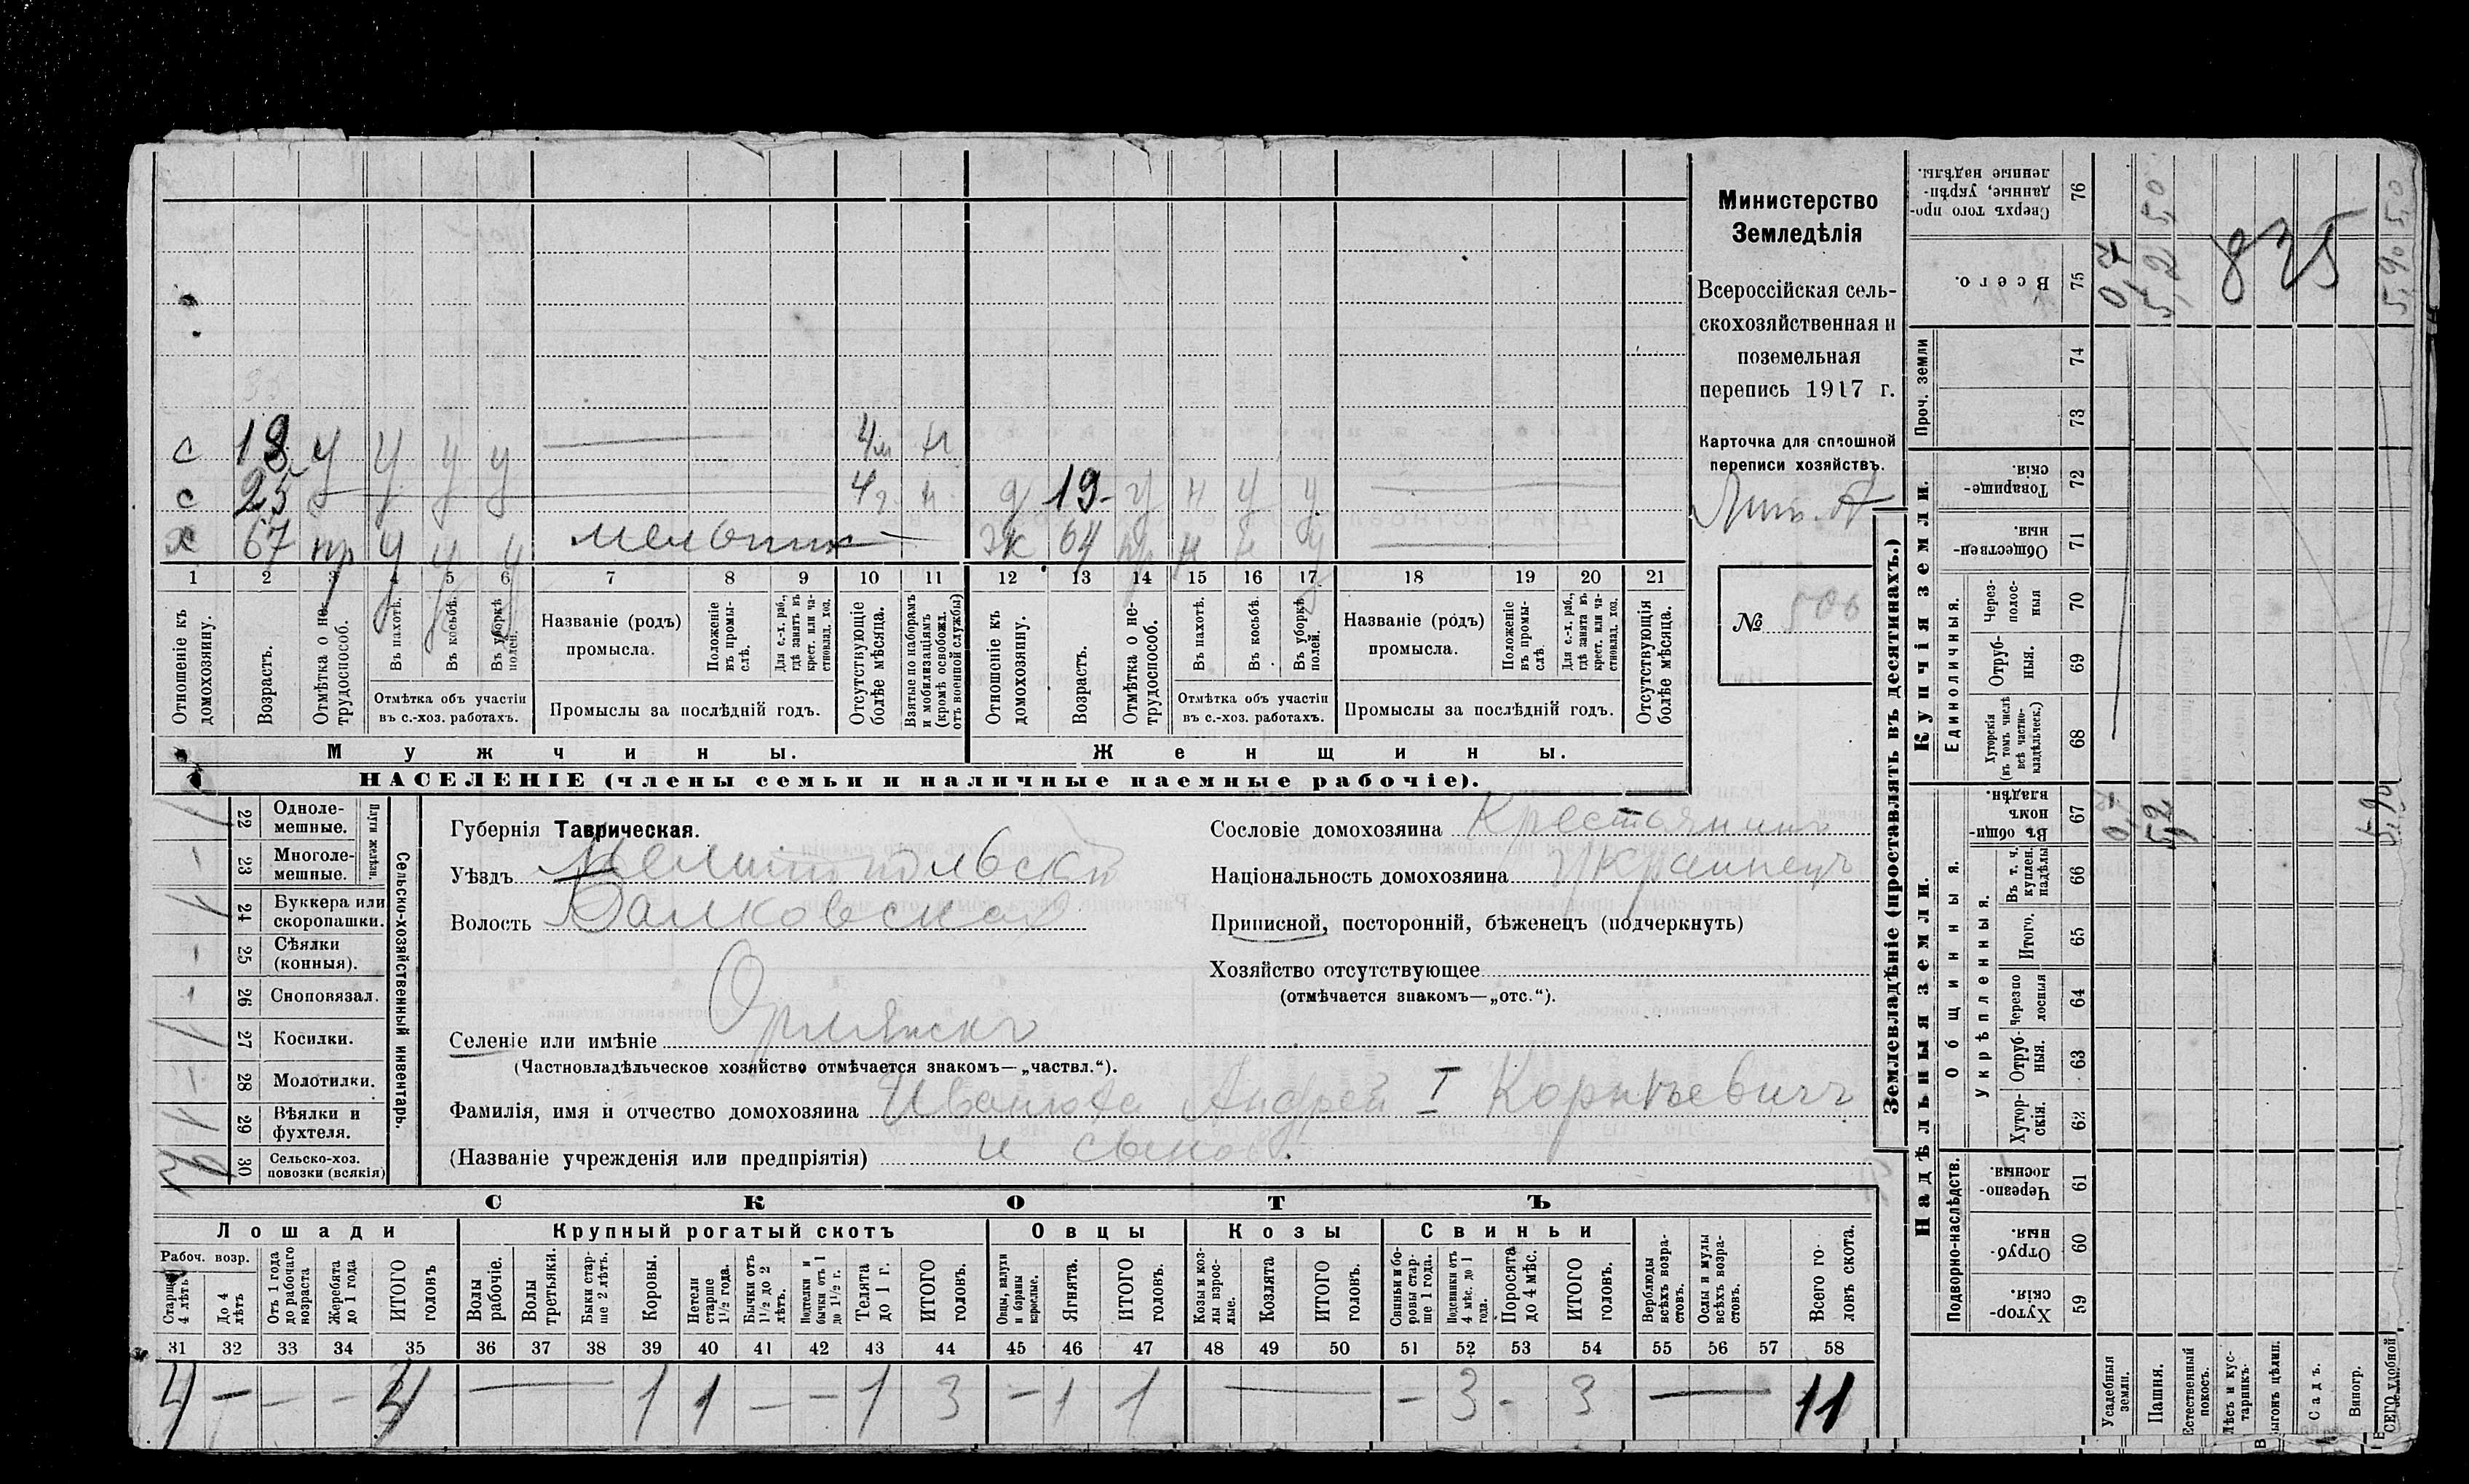 Министерство
Земледѣлія
Всероссійская сель-
скохозяйственная и
поземельная
перепись 1917 г.
Карточка для сплошной
переписи хозяйствъ.
№ 506
с 18 у у у у 4м н
с 25 у у у 4г. н д 19 - у н у у
х 67 пр у у у мельник ж 64 пр н н у
1 2 3 4 5 6 7 8 9 10 11 12 13 14 15 16 17 18 19 20 21
Отношеніе къ домохозяину.
Возрастъ.
Отмѣтка о не-трудоспособ.
Въ пахотѣ.
Въ косьбѣ.
Въ уборкѣ полей.
Отмѣтка объ участіи въ с.-хоз. работахъ.
Названіе (родъ) промысла.
Положеніе въ промы-слѣ.
Для с.-х. раб., гдѣ занятъ въ крест. или ча-стновлад. хоз.
Промыслы за послѣдній годъ.
Отсутствующіе болѣе мѣсяца.
Взятые по наборамъ и мобилизаціямъ (кромѣ освобожд. отъ военной службы)
Отношеніе къ домохозяину.
Возрастъ.
Отмѣтка о не-трудоспособ.
Въ пахотѣ.
Въ косьбѣ.
Въ уборкѣ полей.
Отмѣтка объ участіи въ с.-хоз. работахъ.
Названіе (родъ) промысла.
Положеніе въ промы-слѣ.
Для с.-х. раб., гдѣ занята въ крест. или ча-стновлад. хоз.
Промыслы за послѣдній годъ.
Отсутствующія болѣе мѣсяца.
Мужчины. Женщины.
НАСЕЛЕНІЕ (члены семьи и наличные наемные рабочіе).
Сельско-хозяйственный инвентарь.
Плуги желѣзн.
22 Одноле-мешные. 1
23 Многоле-мешные. -
24 Буккера или скоропашки. 1
25 Сѣялки (конныя). -
26 Сноповязал.
27 Косилки. 1
28 Молотилки.
29 Вѣялки и фухтеля. 1
30 Сельско-хоз. повозки (всякія)
Губернія Таврическая.
Уѣздъ Мелитопольскій
Волость Балковская
Селеніе или имѣніе Орлянскъ
(Частновладѣльческое хозяйство отмѣчается знакомъ—„частвл.“).
Фамилія, имя и отчество домохозяина Иванюта Андрей I Корнѣевичъ
и сынов.
(Названіе учрежденія или предпріятія)
Сословіе домохозяина Крестьянинъ
Національность домохозяина Украинецъ
Приписной, посторонній, бѣженецъ (подчеркнуть)
Хозяйство отсутствующее
(отмѣчается знакомъ—„отс.“).
СКОТЪ
Лошади Крупный рогатый скотъ Овцы Козы Свиньи
Рабоч. возр.
Старше 4 лѣтъ
До 4 лѣтъ
Отъ 1 года до рабочаго возраста
Жеребята до 1 года
ИТОГО головъ
Волы рабочіе.
Волы третьяки.
Быки стар-ше 2 лѣтъ.
Коровы.
Нетели старше 1½ года.
Бычки отъ 1½ до 2 лѣтъ.
Подтелки и бычки отъ 1 до 1½ г.
Телята до 1 г.
ИТОГО головъ.
Овцы, валухи и бараны взрослые.
Ягнята.
ИТОГО головъ.
Козы и коз-лы взрос-лые.
Козлята
ИТОГО головъ.
Свиньи и бо-ровы стар-ше 1 года.
Подсвинки отъ 4 мѣс. до 1 года.
Поросята до 4 мѣс.
ИТОГО головъ.
Верблюды всѣхъ возра-стовъ.
Ослы и мулы всѣхъ возра-стовъ.
Всего го-ловъ скота.
31 32 33 34 35 36 37 38 39 40 41 42 43 44 45 46 47 48 49 50 51 52 53 54 55 56 57 58
4 - - - 4 — 1 1 - - 1 3 - 1 1 — - 3 - 3 — 11
Землевладѣніе (проставлять въ десятинахъ.)
Надѣльныя земли. Купчія земли. Проч. земли
Подворно-наслѣдств.
Общинныя.
Укрѣпленныя.
Единоличныя.
59 Хутор-скія.
60 Отруб-ныя.
61 Черезпо-лосныя.
62 Хутор-скія.
63 Отруб-ныя.
64 Черезпо-лосныя
65 Итого.
66 Въ т. ч. куплен. надѣлы
67 Въ общи-номъ владѣн.
68 Хуторскія (въ томъ числѣ всѣ частно-владѣльческ.)
69 Отруб-ныя.
70 Через-полос-ныя
71 Обществен-ныя.
72 Товарище-скія.
73
74
75 Всего.
76 Сверхъ того про-данные, укрѣп-ленные надѣлы.
Усадебныя земли.
Пашня.
Естественный покосъ.
Лѣсъ и кус-тарникъ.
Выгонъ цѣлин.
Садъ.
Виногр.
ВСЕГО удобной земли.
0,7 5,2 5,90
0,7 5,2 5,90
5,0 5,0
825